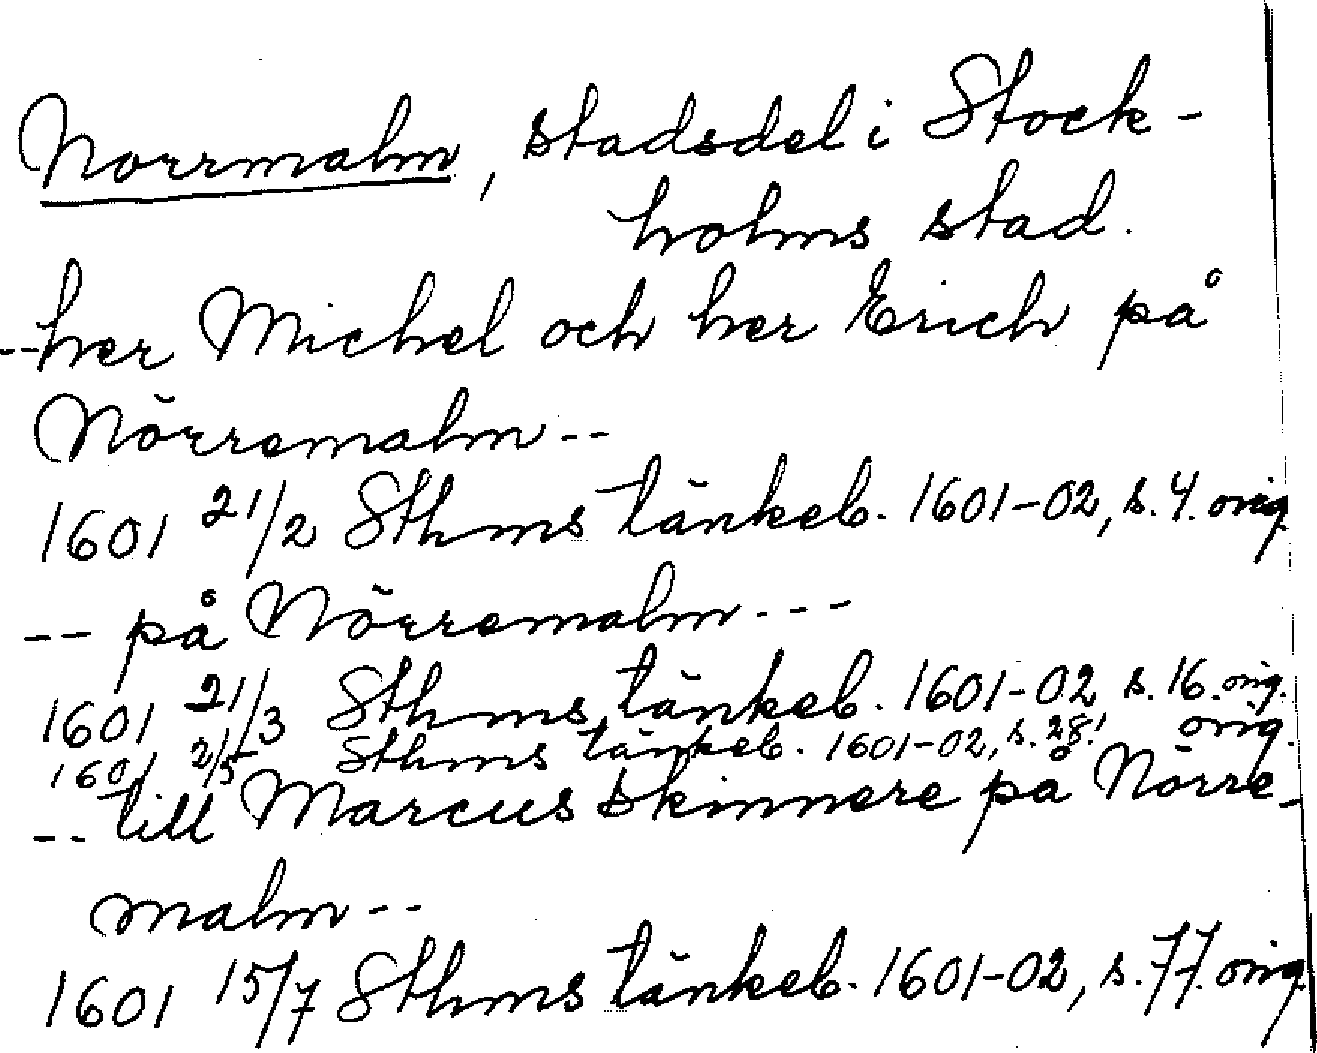 Norrmalm, stadsdel i Stock-
holms stad.
--her Michel och her Erich på
Nörremalm--
1601 21/2 Sthms tänkeb. 1601-02, s. 4. orig.
-- på Nörremalm---
1601 21/3 Sthms tänkeb. 1601-02 s. 16. orig.
1601 2/5 Sthms tänkeb. 1601-02, s. 28! orig.
-- till Marcus skinnere på Nörre-
malm--
1601 15/7 Sthms tänkeb. 1601-02, s. 77. orig.